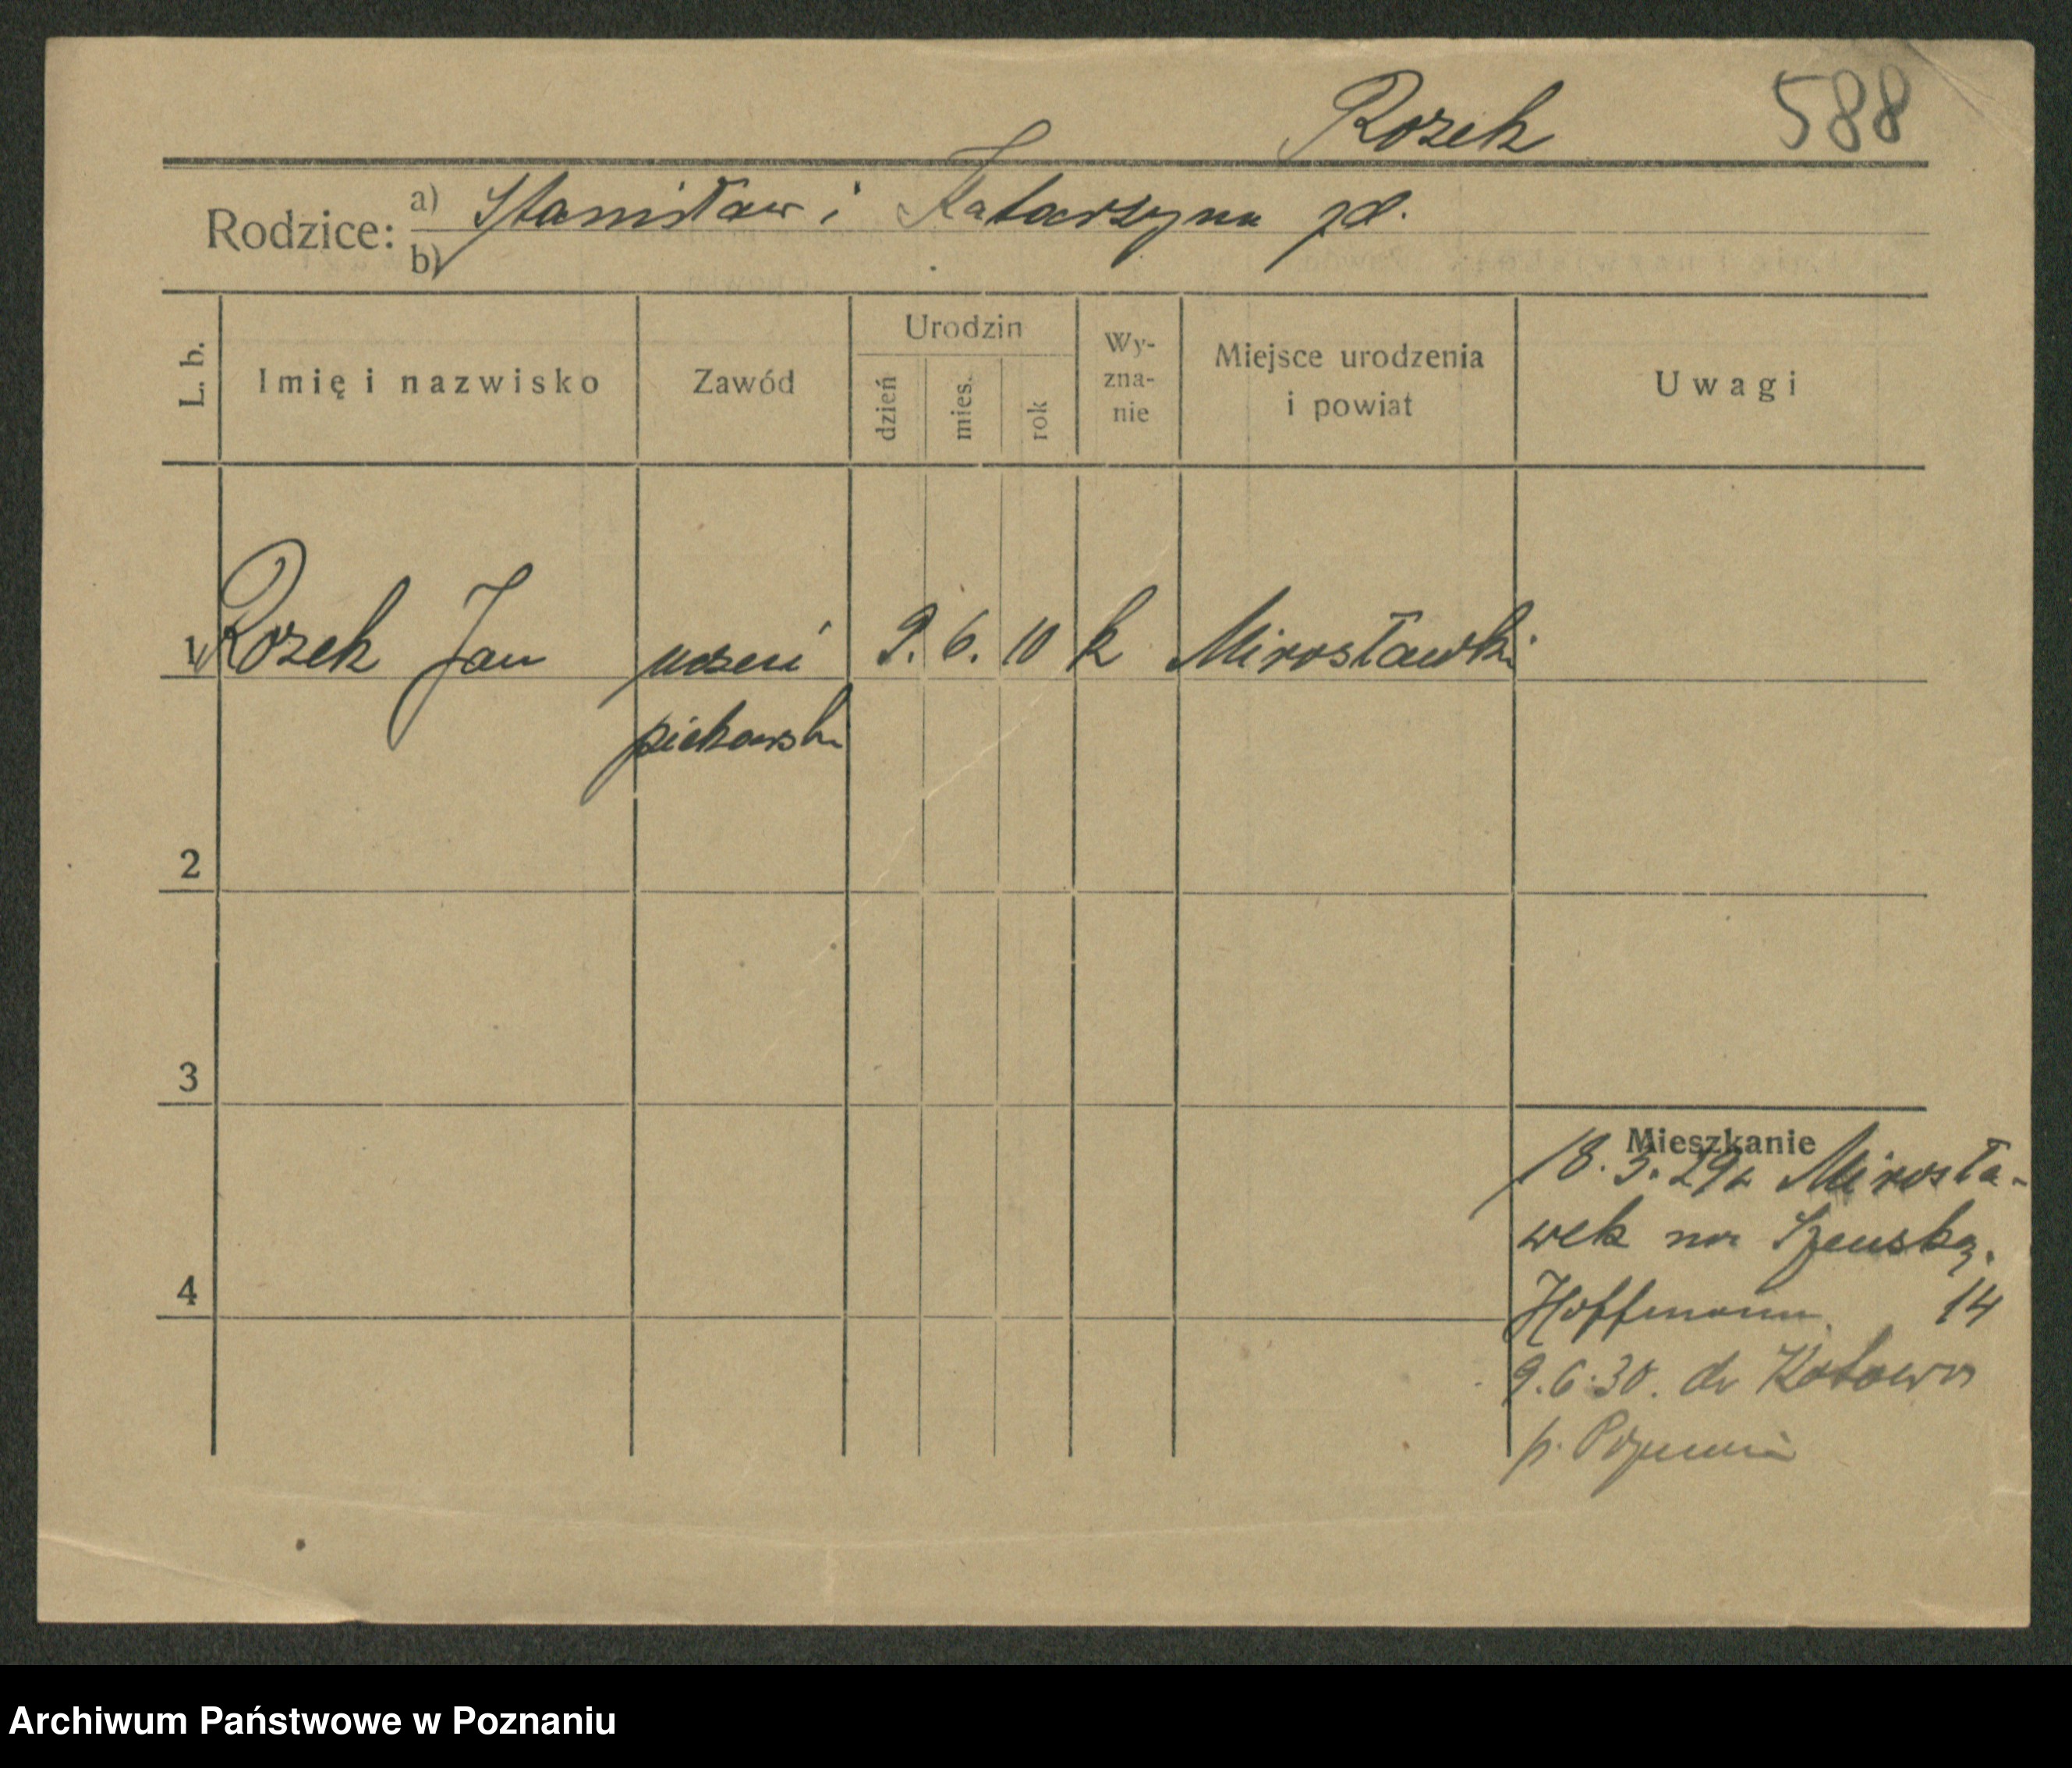 Rozek 588
Rodzice: a) Stanisław i Katarzyna
b)
L. b. Imię i nazwisko Zawód Urodzin dzień mies. rok Wy-zna-nie Miejsce urodzenia i powiat Uwagi
1 Rozek Jan uczeń 9. 6. 10 k Mirosławki
piekarski
2
3
Mieszkanie
18. 3. 29 z Mirosła-
wek na
4
Hoffmann 14
9.6.30. do Kotowa
p.
Archiwum Państwowe w Poznaniu